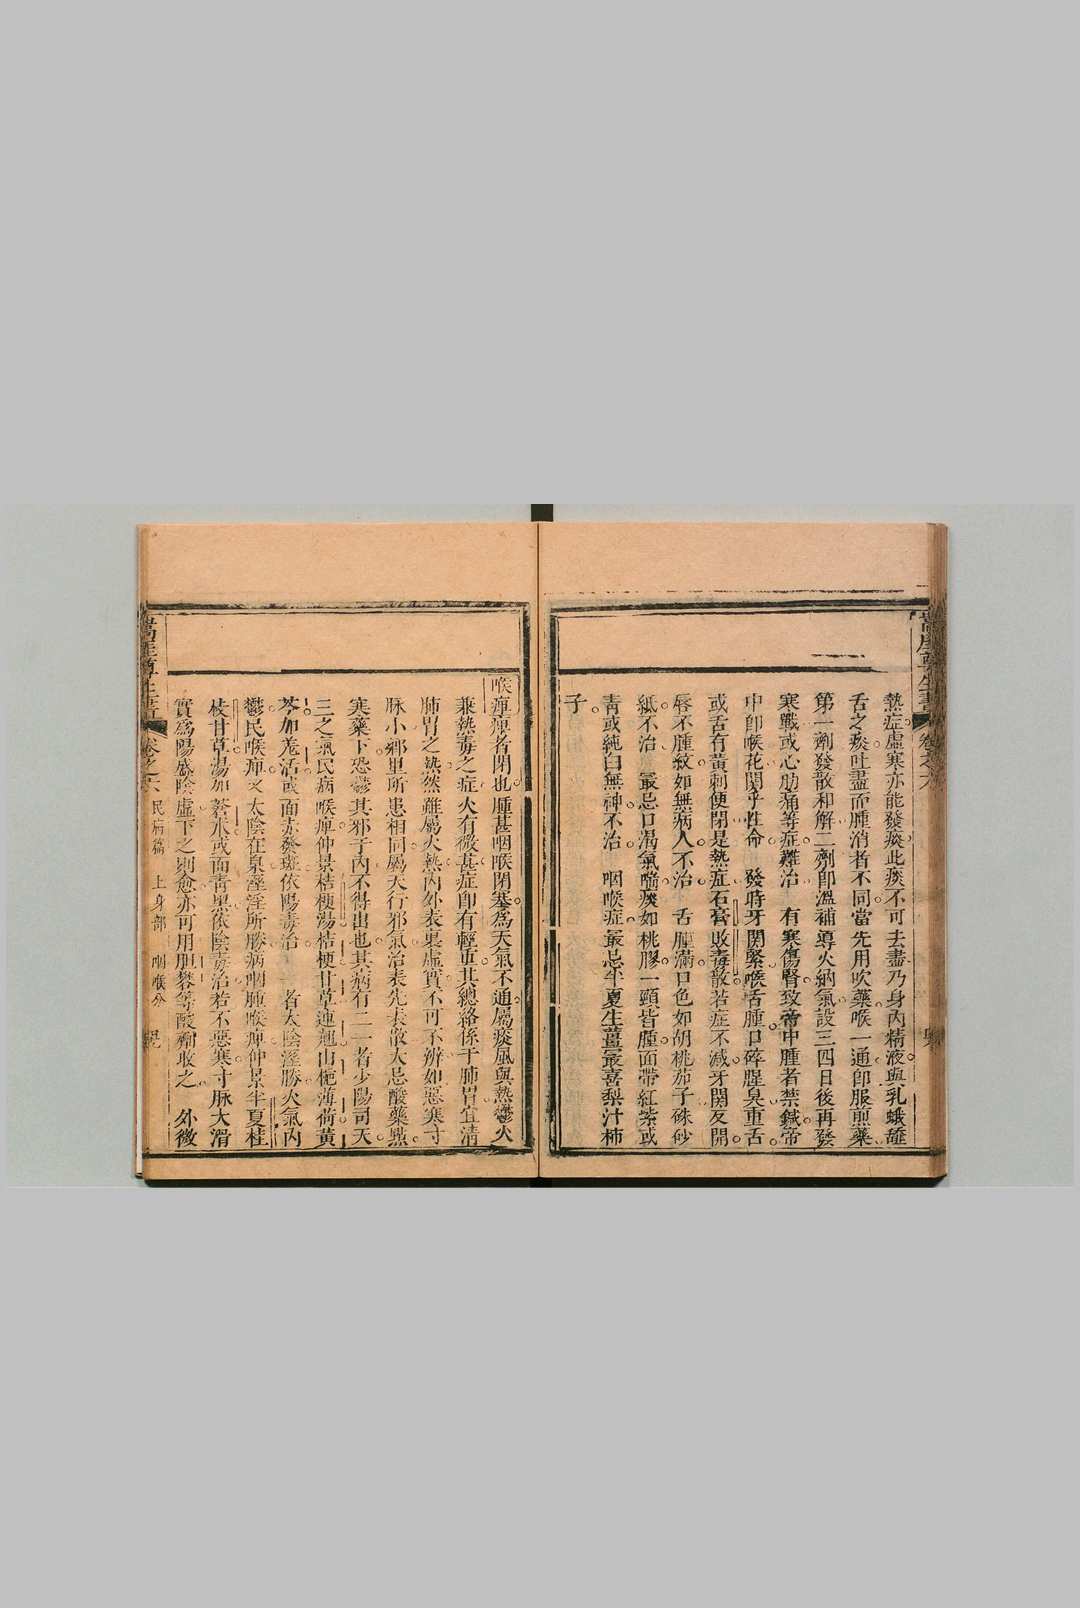 熱症虛寒亦能發痰此痰不可去盡乃身內精液與乳蛾纏
舌之痰吐盡而腫消者不同當先用吹藥喉一通卽服煎藥
第一劑發散和解二劑卽溫補導火納氣設三四日後再發
寒戰或心肋痛等症難治　有寒傷腎致帝中腫者禁鍼帝
中卽喉花關乎性命　發時牙關緊喉舌腫口碎腥臭重舌
或舌有黃刺便閉是熱症石膏敗毒散若症不減牙關反開
唇不腫紋如無病人不治　舌腫滿口色如胡桃茄子硃砂
紙不治　最忌口渴氣喘痰如桃膠一頸皆腫面帶紅紫或
靑或純白無神不治　咽喉症最忌半夏生薑最喜梨汁柿
子
喉痺痺者閉也腫甚咽喉閉塞為天氣不通屬痰風與熱鬱火
兼熱毒之症火有微甚症卽有輕重其總絡係于肺胃宜淸
肺胃之熱然雖屬火熱內外表裏虛實不可不辨如惡寒寸
脉小鄉里所患相同屬天行邪氣治表先表散大忌酸藥點
寒藥下恐鬱其邪于內不得出也其病有二一者少陽司天
三之氣民病喉痺仲景桔梗湯桔梗甘草連翹山梔薄荷黃
芩加羗活或面赤發斑依陽毒治　者太陰淫勝火氣內
鬱民喉痺又太陰在泉溼淫所勝病咽腫喉痺仲景半夏桂
枝甘草湯加　或面靑黑依陰毒治若不惡寒寸脉大滑
實為陽盛陰虛下之則愈亦可用胆礬等酸劑收之　外微
卷之六　民病篇　上身部　咽喉分